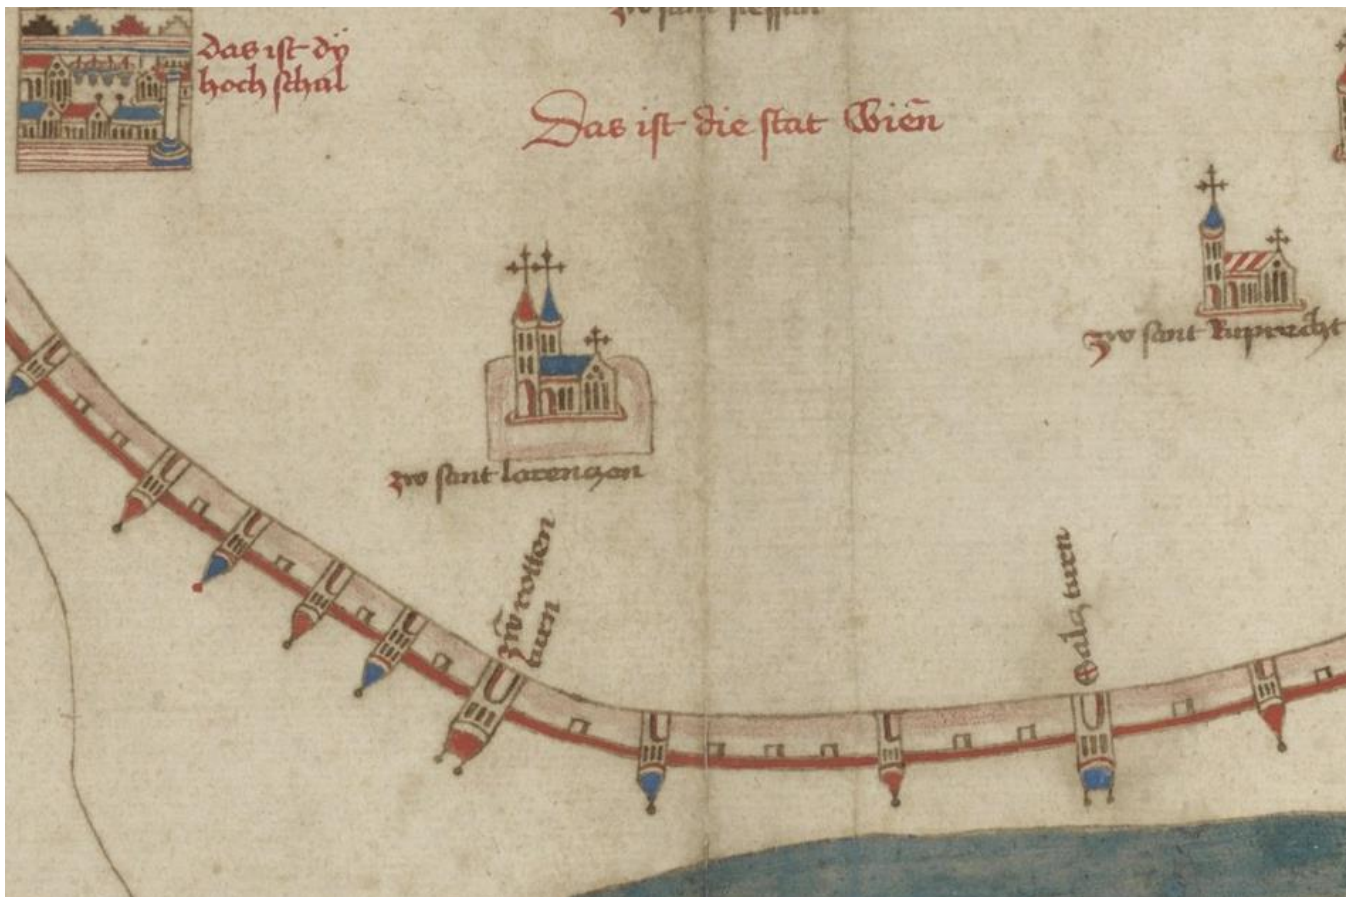 zw sant steffan
das ist dÿ
hoch schul
Das ist die stat Wien̄
zw sant Ruprecht
zw sant larenczen
zw̄ rotten
turn
Salcz turn